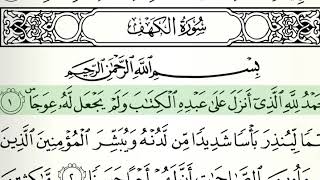 سُورَةُ الكَهْفِ
بِسْمِ اللَّهِ الرَّحْمَٰنِ الرَّحِيمِ
حَمْدُ لِلَّهِ الَّذِي أَنزَلَ عَلَىٰ عَبْدِهِ الْكِتَابَ وَلَمْ يَجْعَل لَّهُ عِوَجًا ۜ ١
مًا لِّيُنذِرَ بَأْسًا شَدِيدًا مِّن لَّدُنْهُ وَيُبَشِّرَ الْمُؤْمِنِينَ الَّذِينَ